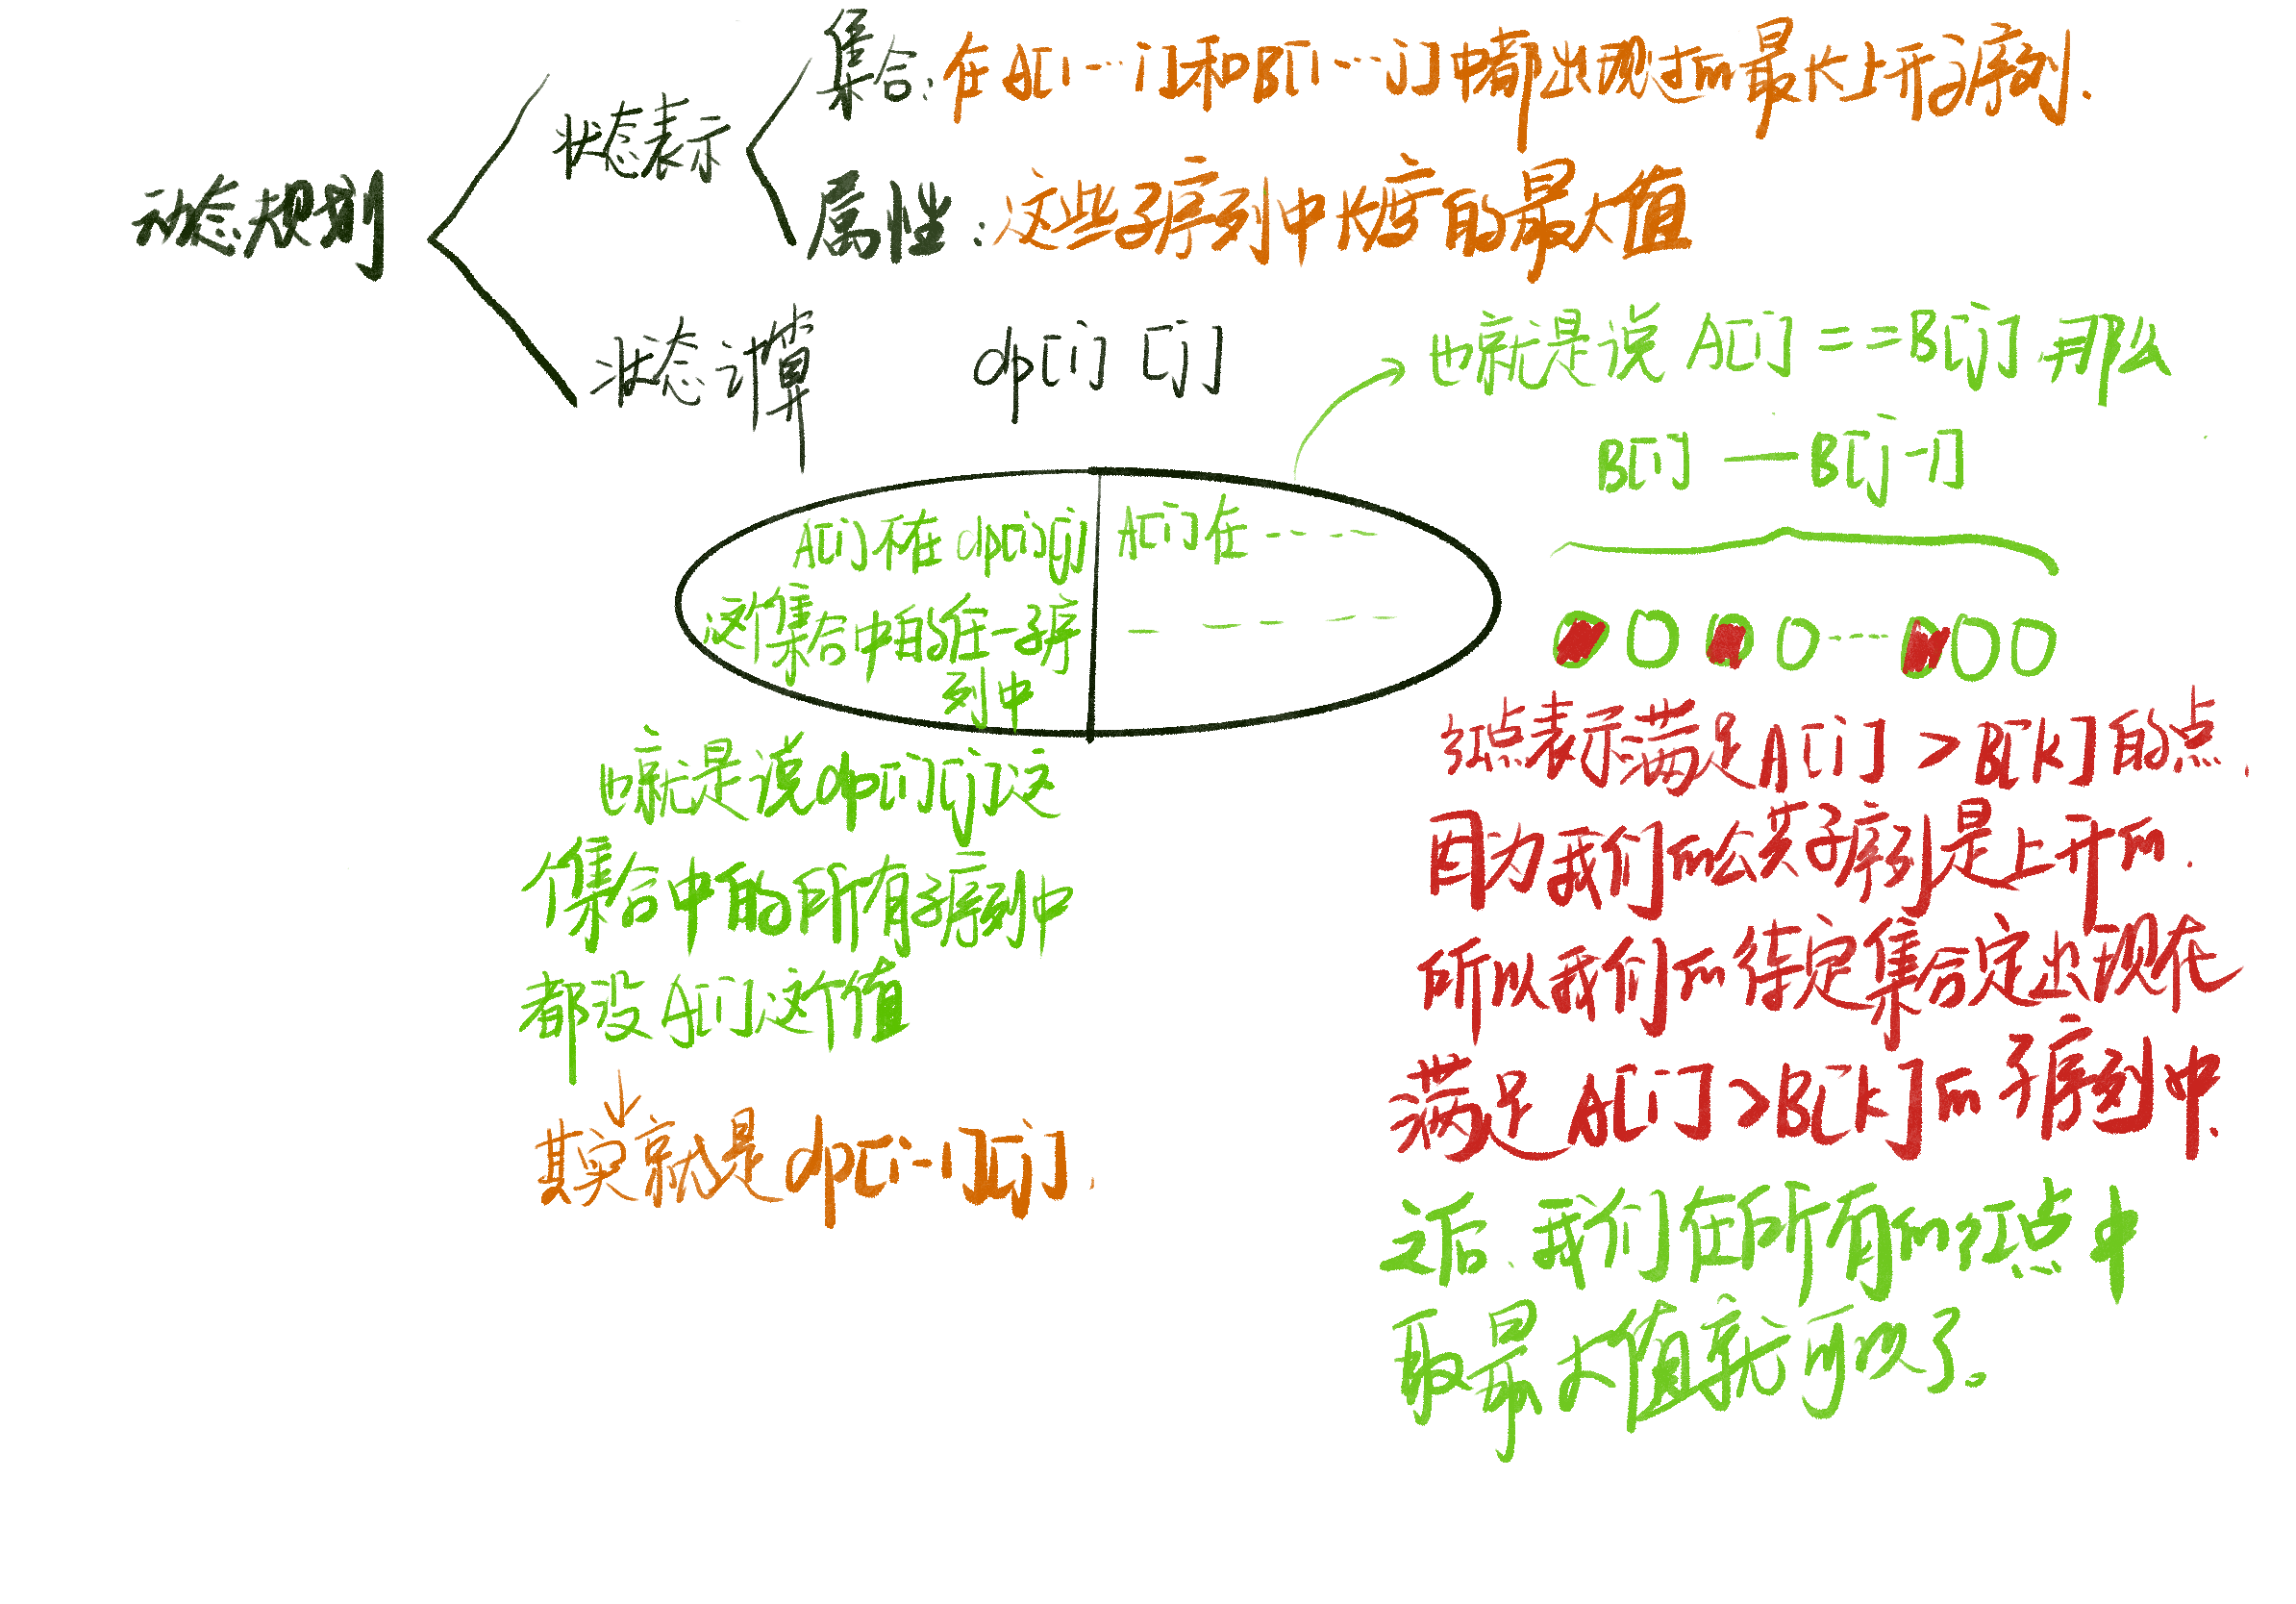 动态规划
状态表示
集合:在A[1…i]和B[1…j]中都出现过的最长上升子序列.
属性:这些子序列中长度的最大值
状态计算
dp[i][j]
A[i]不在dp[i][j]
这个集合中的任一子序
列中
A[i]在-----
- - - - -
也就是说dp[i][j]这
个集合中的所有子序列中
都没A[i]这个值
其实就是dp[i-1][j].
也就是说A[i]==B[j].那么
B[1]—B[j-1]
红点表示满足A[i]>B[k]的点.
因为我们的公共子序列是上升的.
所以我们的待定集合定出现在
满足A[i]>B[k]的子序列中.
之后、我们在所有的红点中
取最大值就可以了。